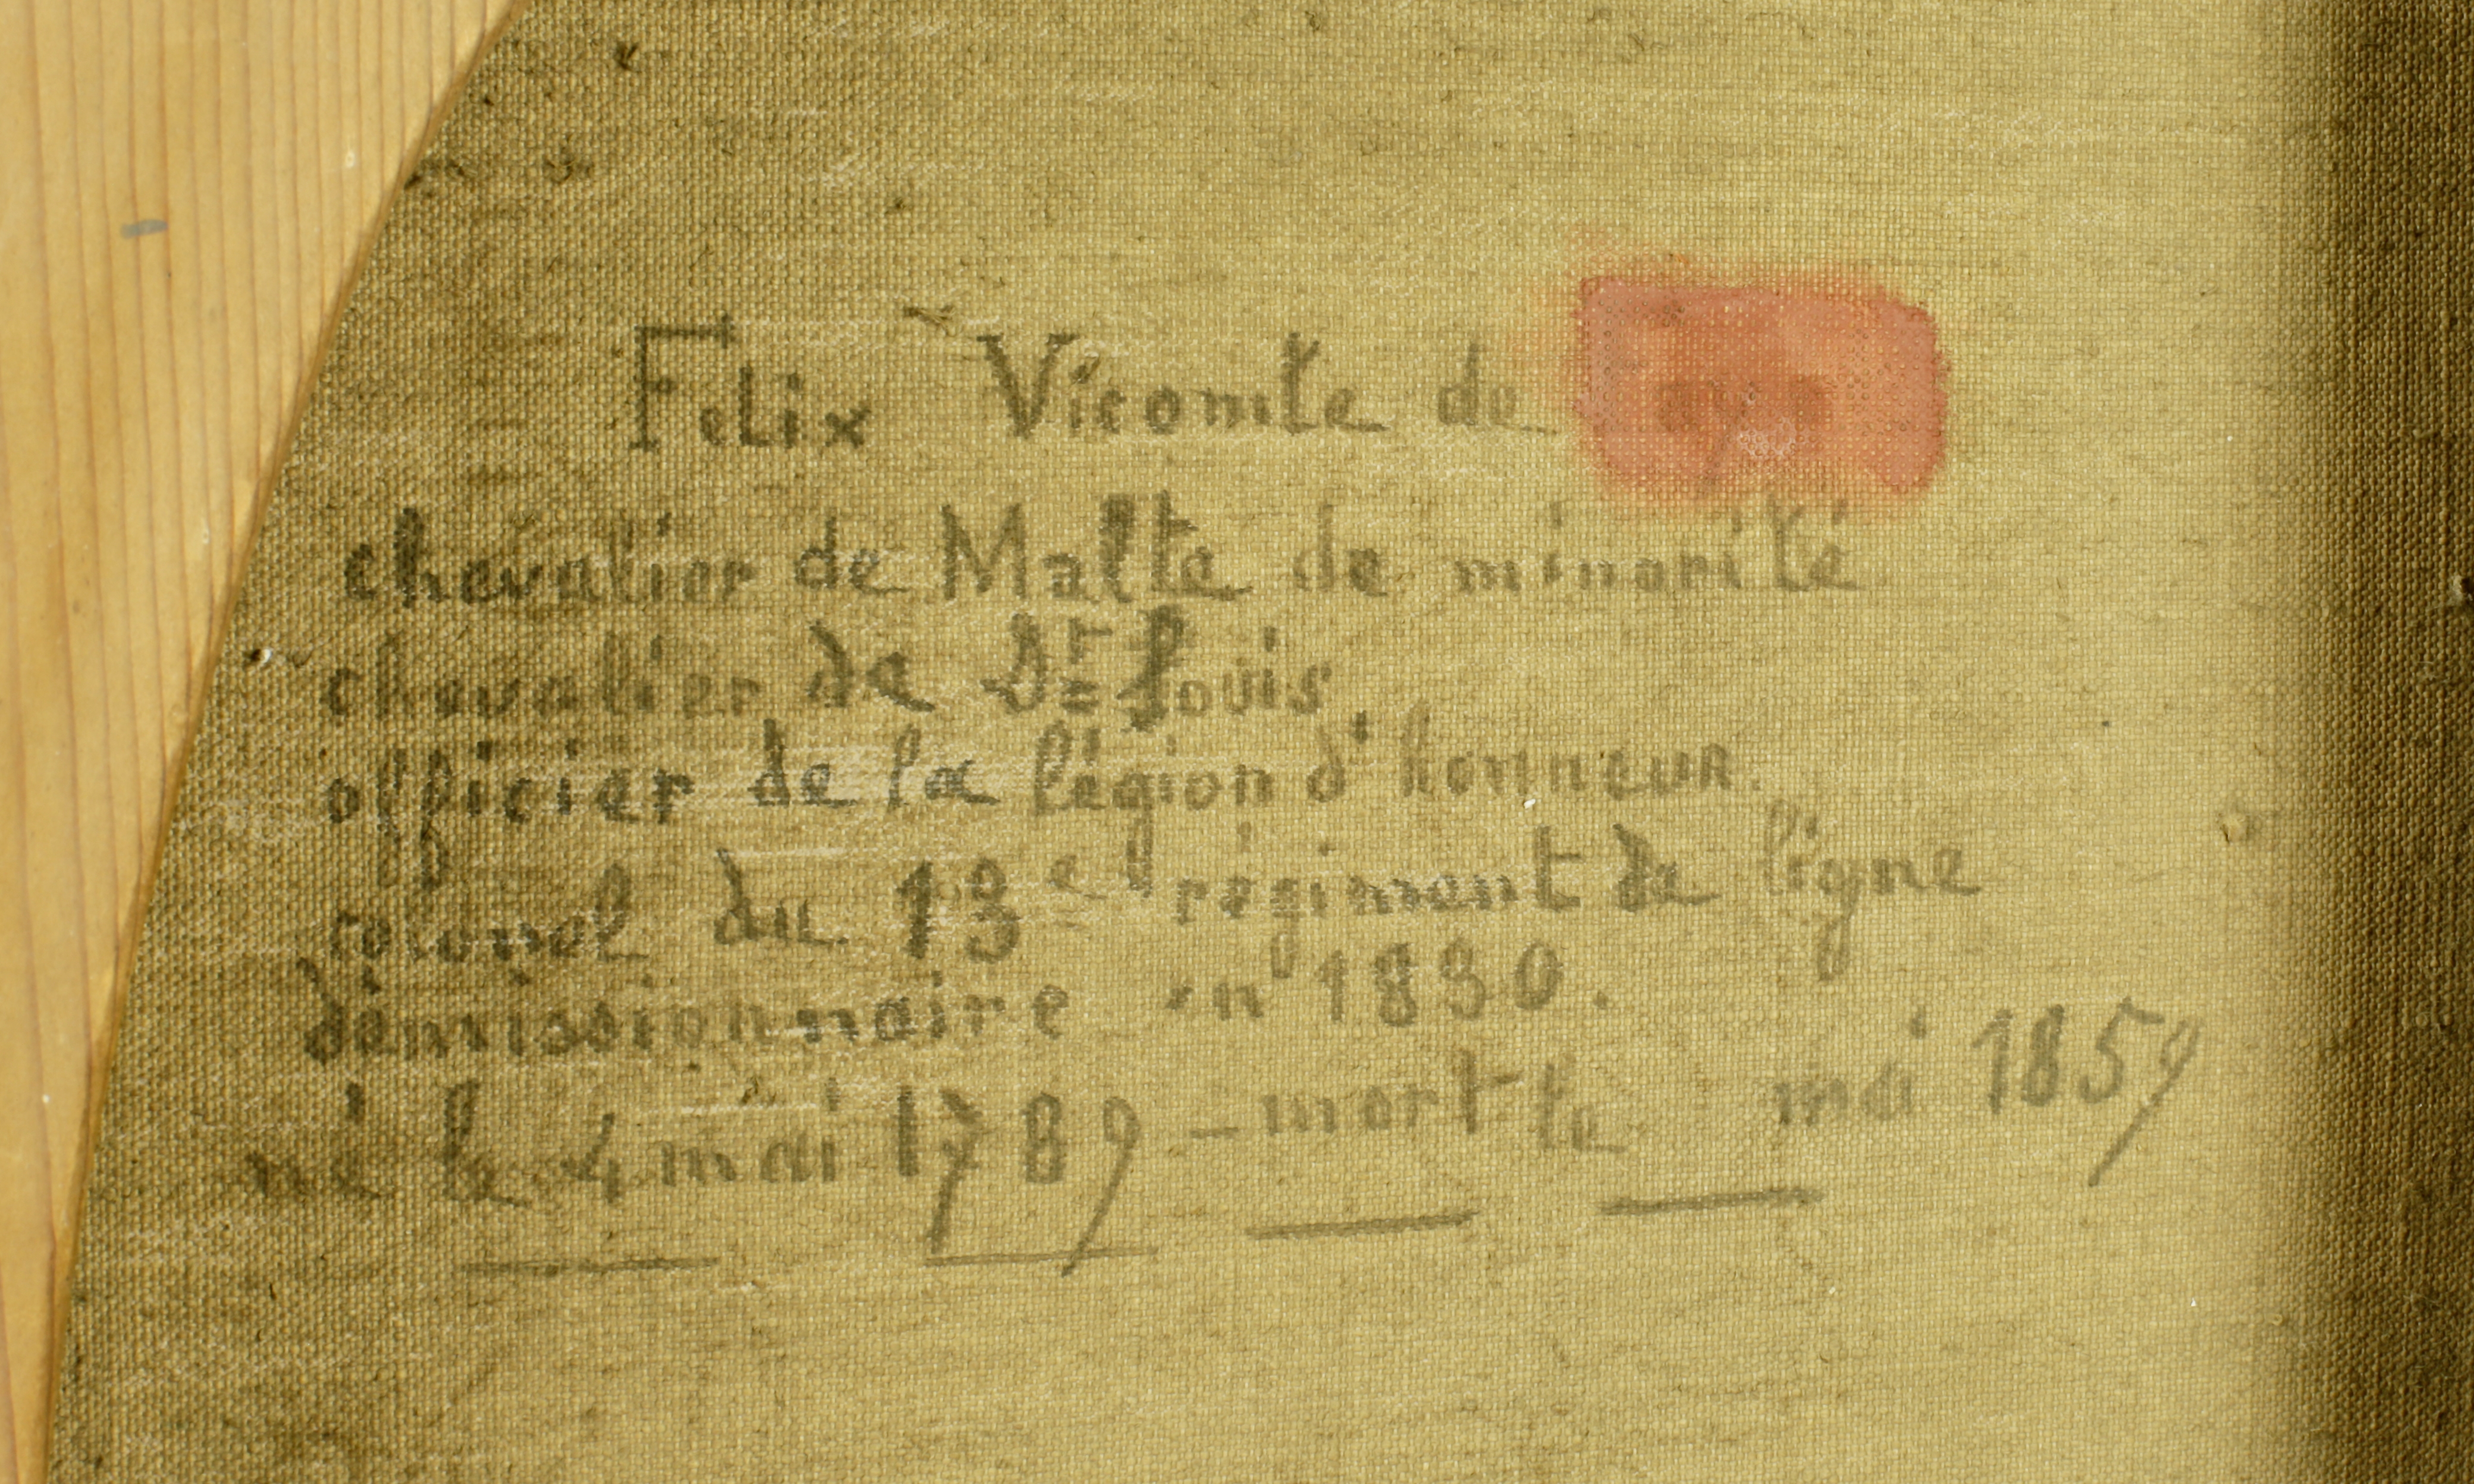 Felix Vicomte de
chevalier de Malte de minorité
chevalier de St Louis
officier de la légion d'honneur.
colonel du 13e régiment de ligne
démissionnaire en 1830.
né le 4 mai 1789 - mort le mai 1859